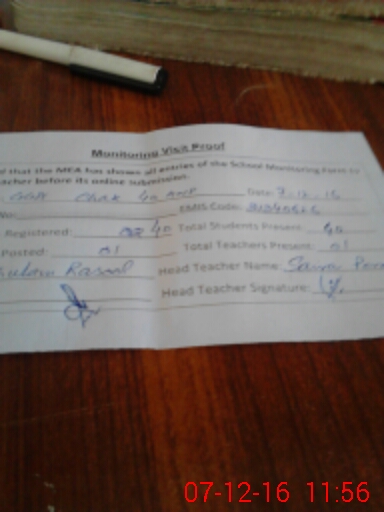 Monitoring Visit Proof
that the MEA has shown all entries of the School Monitoring Form to
eacher before its online submission.
Chak 40 Date: 7-12-16
No: EMIS Code:
Registered: 40 Total Students Present: 40
Posted: 01 Total Teachers Present: 01
Rasool Head Teacher Name:
Head Teacher Signature:
07-12-16 11:56